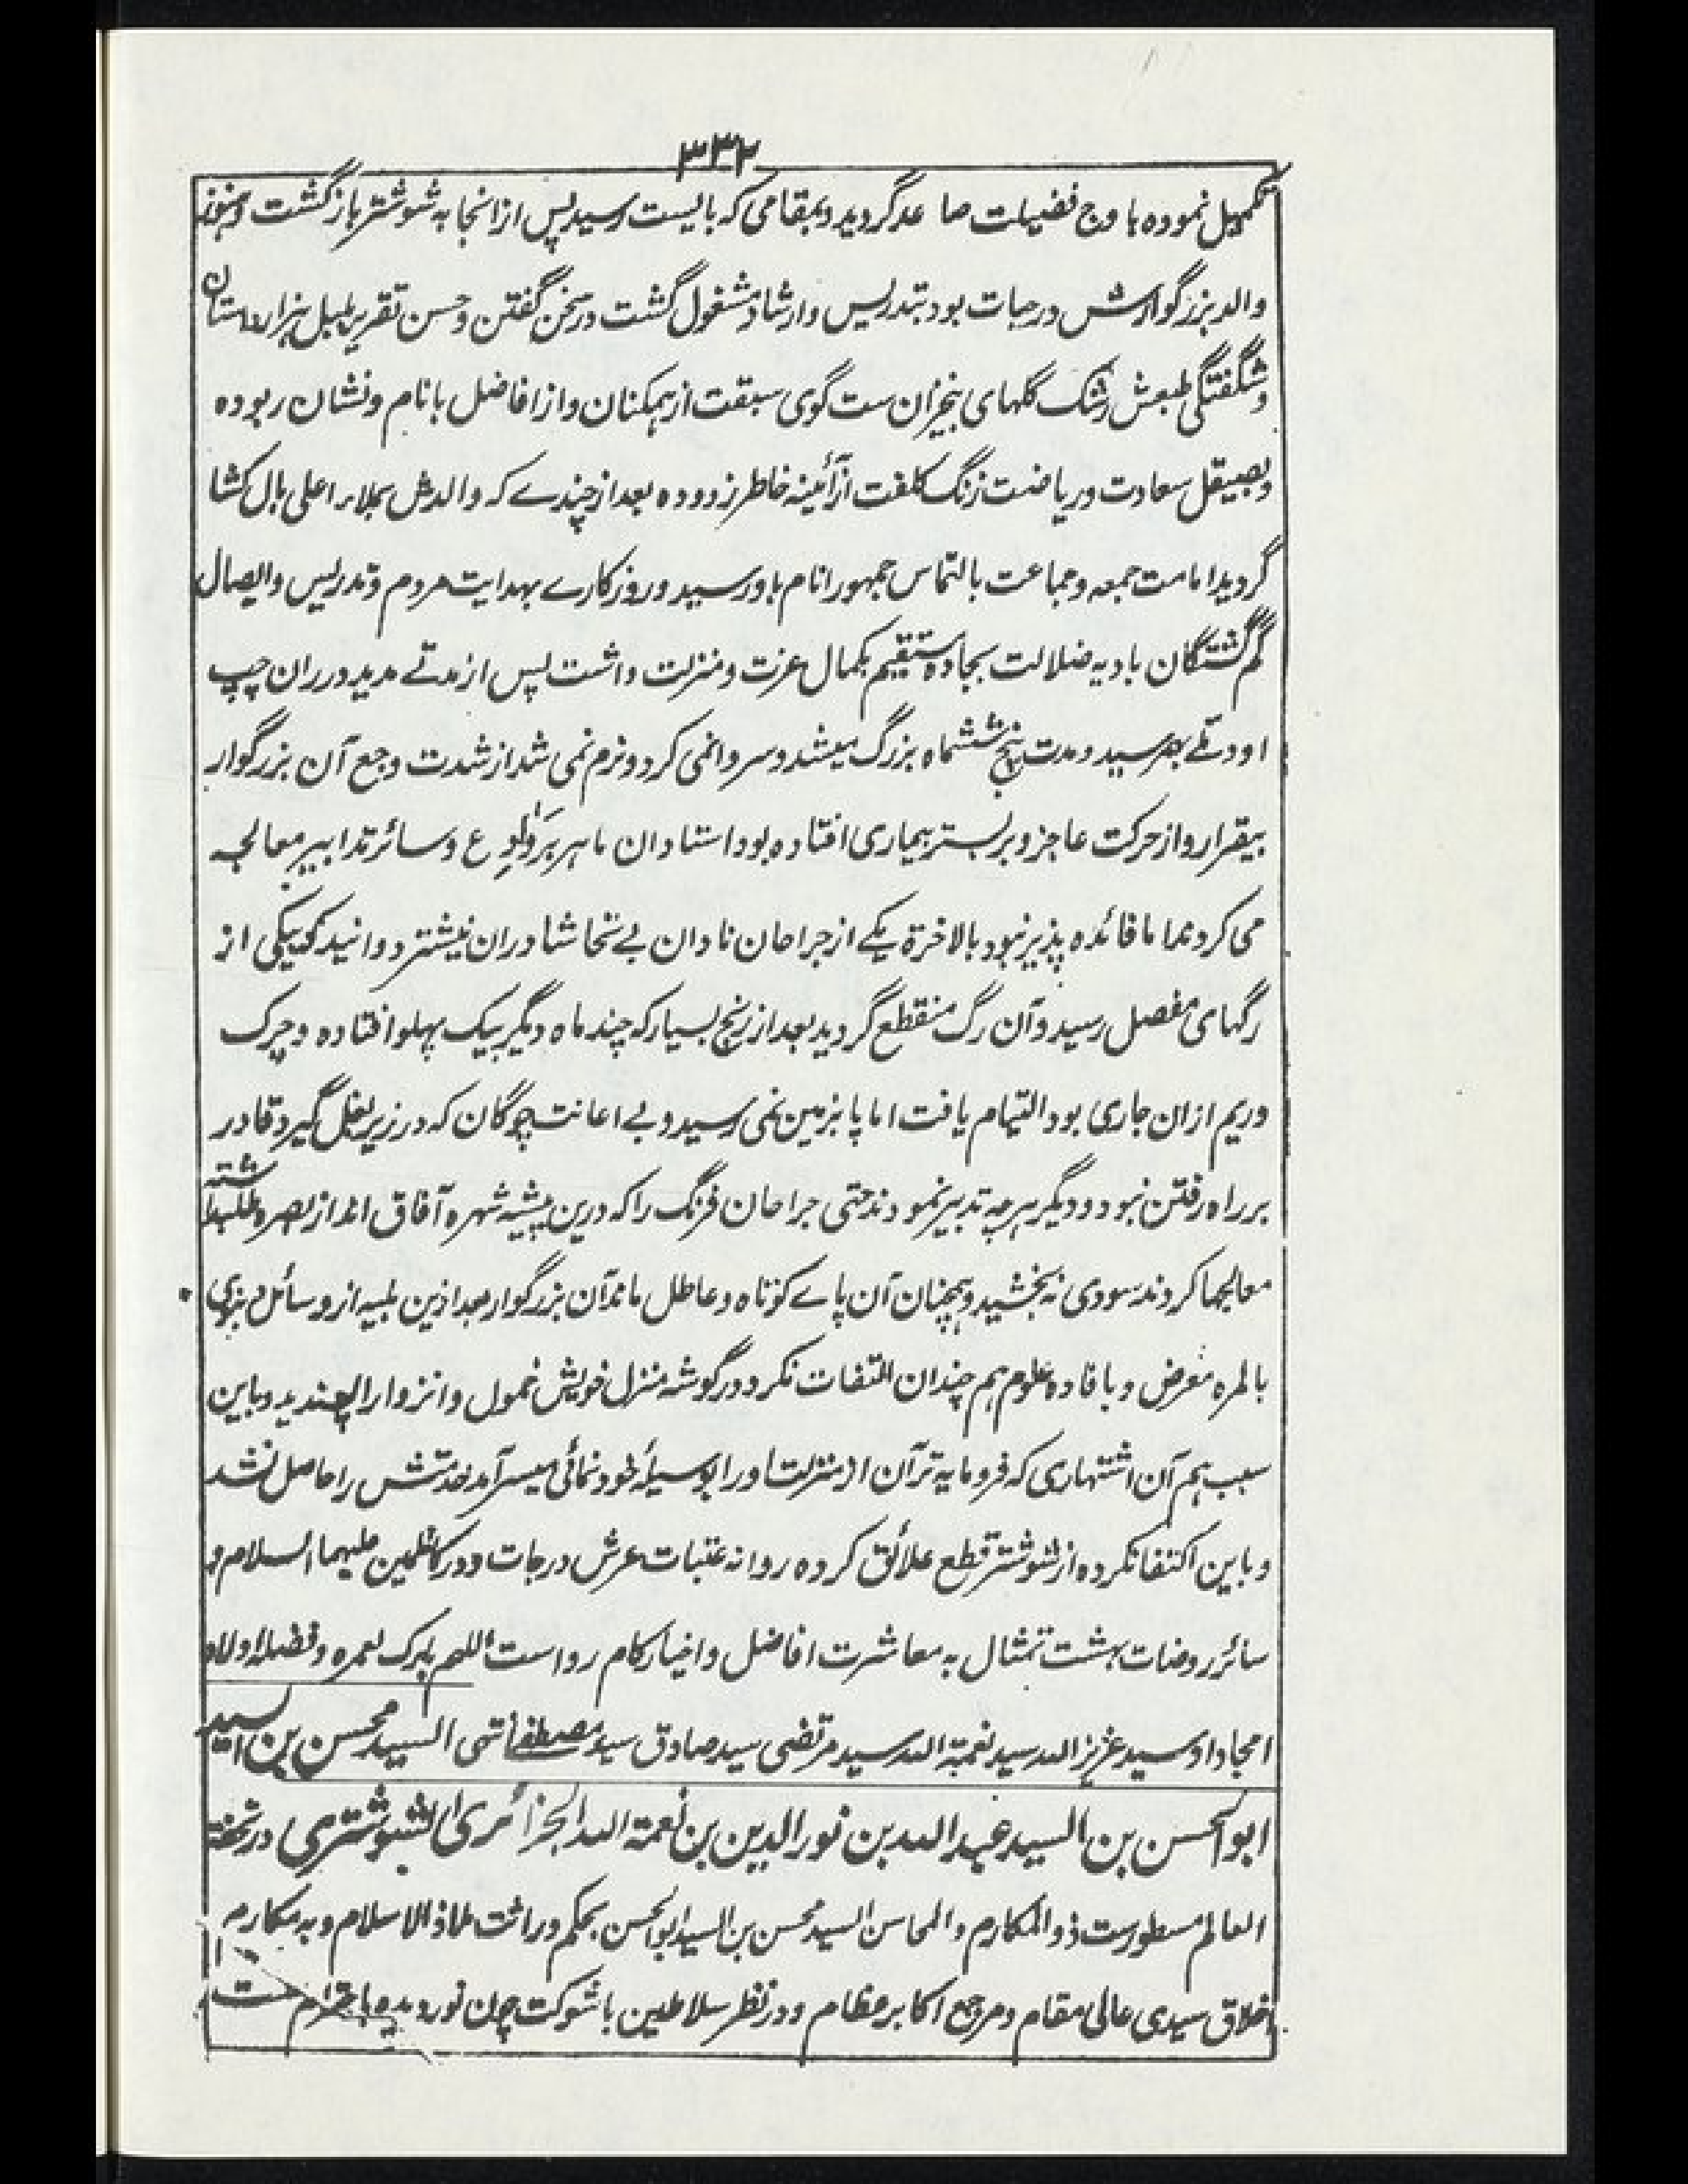 ۳۳۲
تکمیل نموده باوج فضیلت صاعد گردید و بمقامی که بایست رسید پس از انجا به شوشتر بازگشت و هنوز
والد بزرگوارش در حیات بود بتدریس و ارشاد مشغول گشت در سخن گفتن و حسن تقریر بلبل هزار داستان
و شگفتگی طبعش رشک گلهای بیخزان ست گوی سبقت از همکنان و از افاضل با نام و نشان ربوده
و بصیقل سعادت و ریاضت زنگ کلفت از آئینه خاطر زدوده بعد از چندے که والدش بملاء اعلی بال کشا
گردید امامت جمعه و جماعت بالتماس جمهور انام باو رسید و روزکارے بهدایت مردم و تدریس و ایصال
گم گشتگان بادیه ضلالت بجاده مستقیم بکمال عزت و منزلت داشت پس از مدتے مدید در ران چپ
او دملے بهم رسید و مدت پنج ششماه بزرگ میشد و سر وا نمی کرد و نرم نمی شد از شدت وجع آن بزرگوار
بیقرار و از حرکت عاجز و بر بستر بیماری افتاده بود استادان ماهر برواوع و سائر تدابیر معالجه
می کردند اما فائده پذیر نبود بالاخرة یکے از جراحان نادان بے تحاشا دران نیشتر دوانید که بیکی از
رگهای مفصل رسید و آن رگ منقطع گردید بعد از رنج بسیار که چند ماه دیگر بیک پهلو افتاده و چرک
و ریم ازان جاری بود التیام یافت اما پا بزمین نمی رسید و بے اعانت چوگان که در زیر بغل گیرد قادر
بر راه رفتن نبود و دیگر هر چه تدبیر نمودند حتی جراحان فرنگ را که درین پیشه شهره آفاق اند از بصره طلبداشته
معالجها کردند سودی نه بخشید و همچنان آن پاے کوتاه و عاطل ماند آن بزرگوار بعد ازین بلیه از وسائل دنیوی
بالمره معرض و بافاده علوم هم چندان التفات نکرد و در گوشه منزل خویش خمول و انزوا را پسندید و باین
سبب هم آن اشتهاری که فرومایه تر آن از منزلت اورا بوسیلۀ خودنمائی میسر آمد خدمتش را حاصل نشد
و باین اکتفا نکرده از شوشتر قطع علائق کرده روانه عتبات عرش درجات و در کاظمین علیهما السلام و
سائر روضات بهشت تمثال به معاشرت افاضل و اخیار کام رواست اللهم بارک لعمره و فضله اولاد
امجاد او سید عزیز الله سید نعمة الله سید مرتضی سید صادق سید مصطفا انتهی السید محسن بن السید
ابو الحسن بن السید عبد الله بن نور الدین بن نعمة الله الجزائری الشوشتری در تحفة
العالم مسطورست ذو المکارم و المحاسن السید محسن بن السید ابو الحسن بحکم وراثت ملاذ الاسلام و به مکارم
اخلاق سیدی عالی مقام و مرجع اکابر عظام و در نظر سلاطین با شوکت چون نور دیده با احترام ست